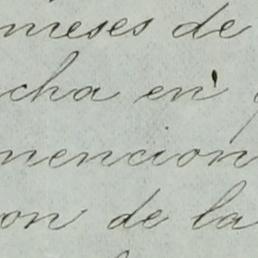 meses de
cha en
mencion
on de la